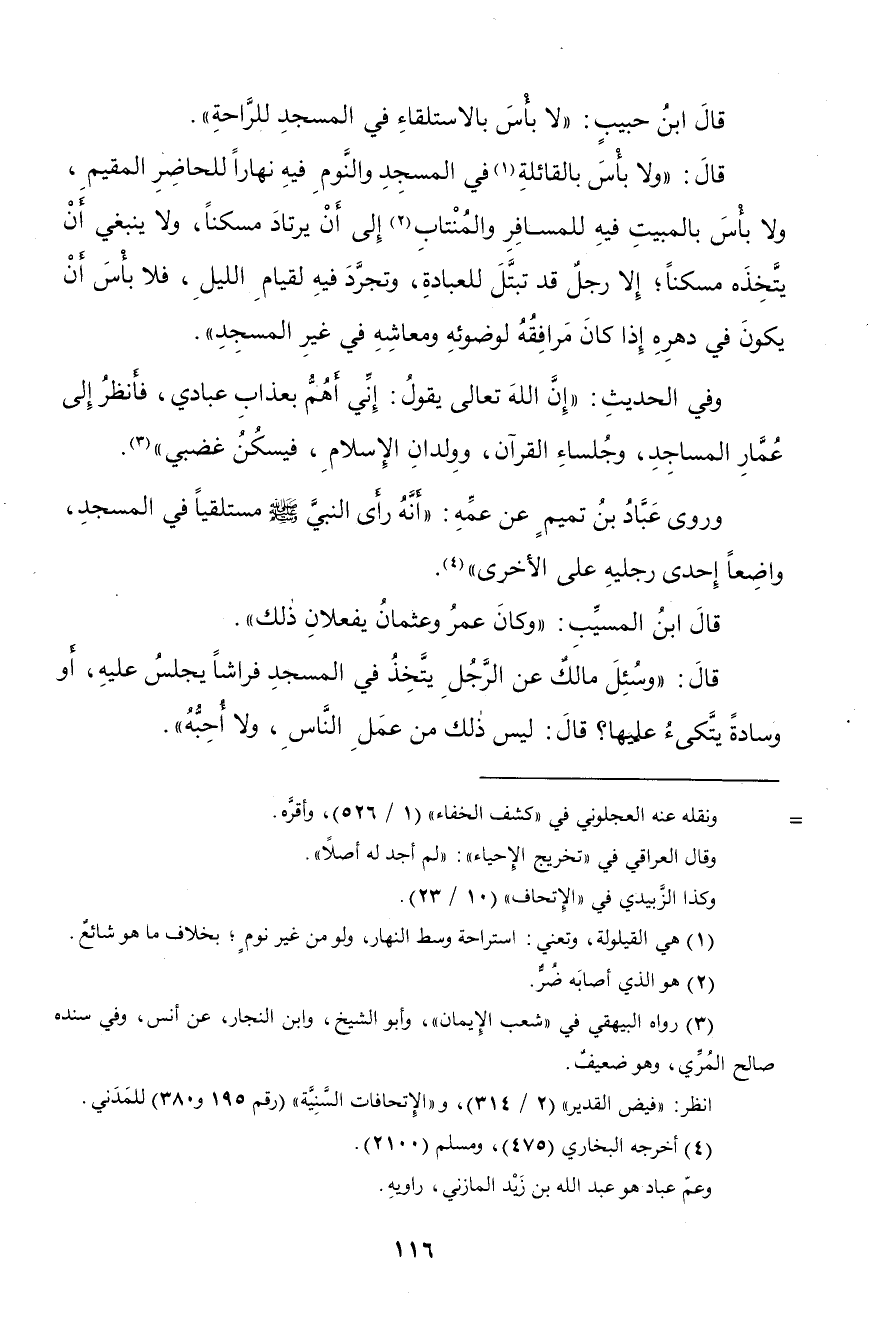 قالَ ابنُ حبيبٍ: «لا بأْسَ بالاستلقاءِ في المسجدِ للرَّاحةِ».
قالَ: «ولا بأْسَ بالقائلةِ(١) في المسجدِ والنَّومِ فيهِ نهاراً للحاضِرِ المقيمِ،
ولا بأْسَ بالمبيتِ فيه للمسافِرِ والمُنْتابِ(٢) إِلى أَنْ يرتادَ مسكناً، ولا ينبغي أَنْ
يتَّخِذَه مسكناً؛ إِلا رجلٌ قد تبتَّلَ للعبادةِ، وتجرَّدَ فيه لقيامِ الليلِ، فلا بأْسَ أَنْ
يكونَ في دهرِهِ إِذا كانَ مَرافِقُهُ لوضوئهِ ومعاشِهِ في غيرِ المسجدِ».
وفي الحديثِ: «إِنَّ اللهَ تعالى يقولُ: إِنِّي أَهُمُّ بعذابِ عبادي، فأَنظرُ إِلى
عُمَّارِ المساجدِ، وجُلساءِ القرآن، وولدانِ الإِسلامِ، فيسكُنُ غضبي»(٣).
وروى عَبَّادُ بنُ تميمٍ عن عمِّهِ: «أَنَّهُ رأَى النبيَّ ﷺ مستلقياً في المسجدِ،
واضِعاً إِحدى رجليهِ على الأخرى»(٤).
قالَ ابنُ المسيِّبِ: «وكانَ عمرُ وعثمانُ يفعلانِ ذٰلك».
قالَ: «وسُئِلَ مالكٌ عن الرَّجُلِ يتَّخِذُ في المسجدِ فراشاً يجلسُ عليهِ، أَو
وسادةً يتَّكىءُ عليها؟ قالَ: ليس ذٰلك من عمَلِ النَّاسِ، ولا أُحِبُّهُ».
= ونقله عنه العجلوني في «كشف الخفاء» (١ / ٥٢٦)، وأقرَّه.
وقال العراقي في «تخريج الإِحياء»: «لم أجد له أصلًا».
وكذا الزَّبيدي في «الإِتحاف» (١٠ / ٢٣).
(١) هي القيلولة، وتعني: استراحة وسط النهار، ولو من غير نومٍ؛ بخلاف ما هو شائعٌ.
(٢) هو الذي أصابَه ضُرٌّ.
(٣) رواه البيهقي في «شعب الإِيمان»، وأبو الشيخ، وابن النجار، عن أنس، وفي سنده
صالح المُرِّي، وهو ضعيفٌ.
انظر: «فيض القدير» (٢ / ٣١٤)، و«الإِتحافات السَّنِيَّة» (رقم ١٩٥ و٣٨٠) للمَدَني.
(٤) أخرجه البخاري (٤٧٥)، ومسلم (٢١٠٠).
وعمّ عباد هو عبد الله بن زَيْد المازني، راويهِ.
١١٦